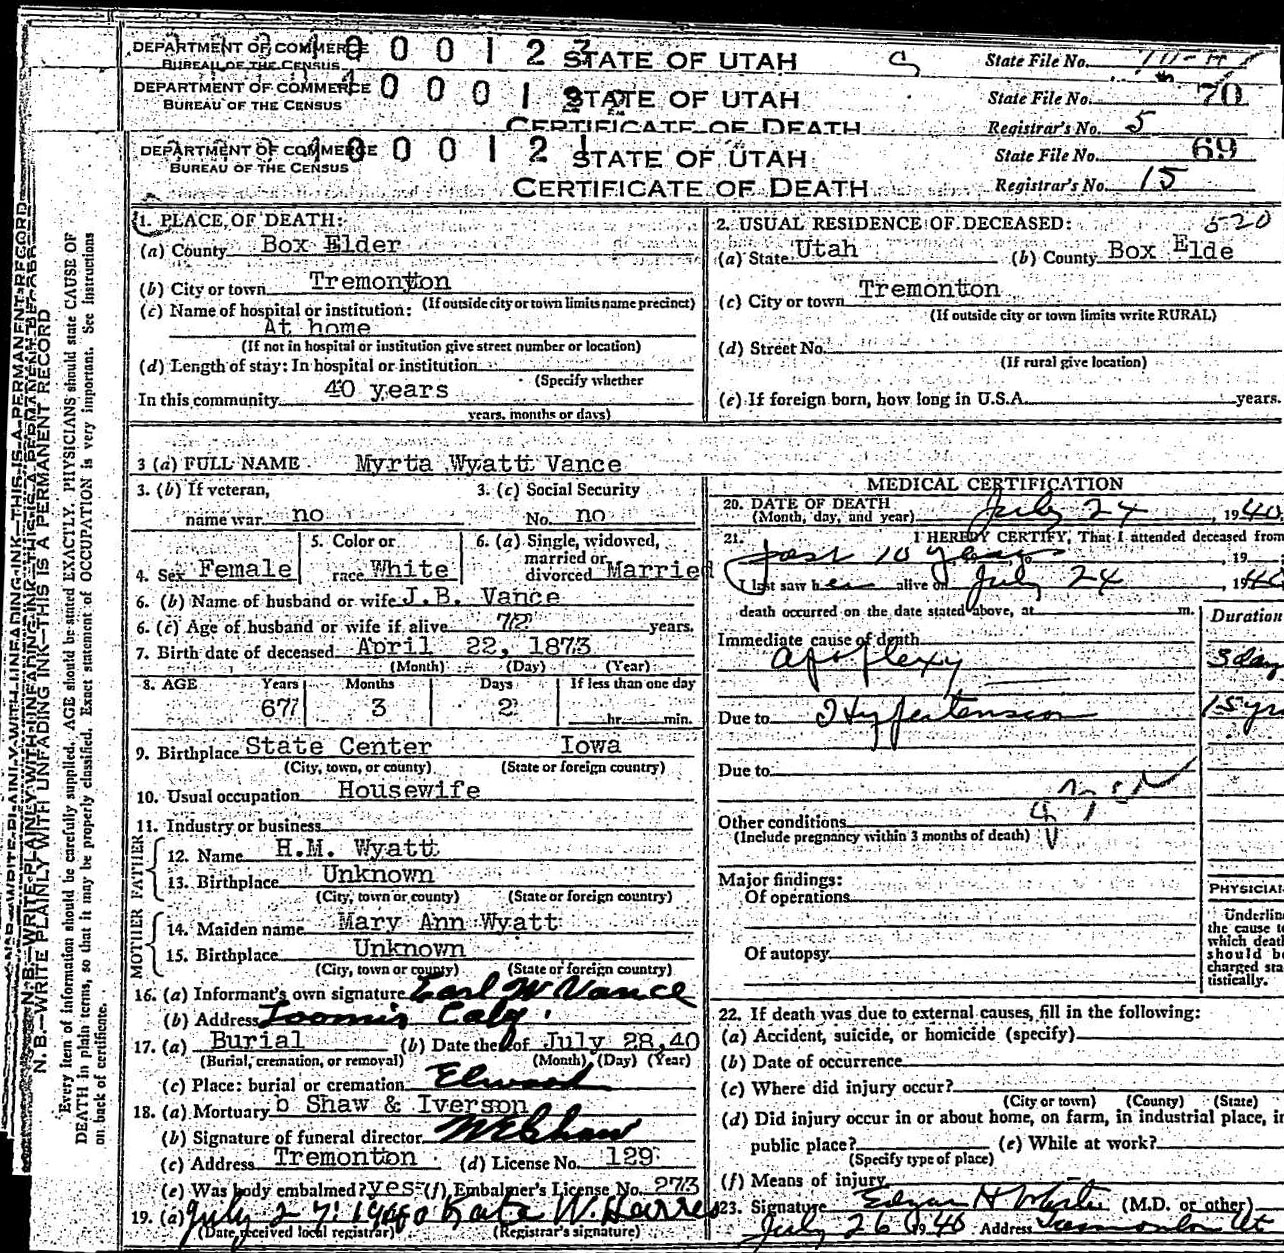 DEPARTMENT OF COMMERCE 1 0 0 0 1 2 3 STATE OF UTAH State File No.
BUREAU OF THE CENSUS
DEPARTMENT OF COMMERCE 0 0 0 1 STATE OF UTAH State File No. 70
BUREAU OF THE CENSUS
CERTIFICATE OF DEATH Registrar's No. 5
DEPARTMENT OF COMMERCE 0 0 0 1 2 1 STATE OF UTAH State File No. 69
BUREAU OF THE CENSUS
CERTIFICATE OF DEATH Registrar's No. 15
1. PLACE OF DEATH:
(a) County Box Elder
(b) City or town Tremonton
(If outside city or town limits name precinct)
(c) Name of hospital or institution:
At home
(If not in hospital or institution give street number or location)
(d) Length of stay: In hospital or institution
(Specify whether
In this community 40 years
years, months or days)
2. USUAL RESIDENCE OF DECEASED: 520
(a) State Utah (b) County Box Elde
(c) City or town Tremonton
(If outside city or town limits write RURAL)
(d) Street No.
(If rural give location)
(e) If foreign born, how long in U.S.A. years.
3 (a) FULL NAME Myrta Wyatt Vance
3. (b) If veteran, 3. (c) Social Security
name war no No. no
5. Color or 6. (a) Single, widowed,
married or
4. Sex Female race White divorced Married
6. (b) Name of husband or wife J.B. Vance
6. (c) Age of husband or wife if alive 72 years.
7. Birth date of deceased April 22, 1873
(Month) (Day) (Year)
8. AGE Years Months Days If less than one day
67 3 2 hr. min.
9. Birthplace State Center Iowa
(City, town, or county) (State or foreign country)
10. Usual occupation Housewife
11. Industry or business
FATHER
12. Name H.M. Wyatt
13. Birthplace Unknown
(City, town or county) (State or foreign country)
MOTHER
14. Maiden name Mary Ann Wyatt
15. Birthplace Unknown
(City, town or county) (State or foreign country)
16. (a) Informant's own signature Earl W Vance
(b) Address Loomis Calif.
17. (a) Burial (b) Date thereof July 28,40
(Burial, cremation, or removal) (Month) (Day) (Year)
(c) Place: burial or cremation Elwood
18. (a) Mortuary Shaw & Iverson
(b) Signature of funeral director
(c) Address Tremonton (d) License No. 129
(e) Was body embalmed? yes (f) Embalmer's License No. 273
19. (a) July 27, 1940 Kate W. Harris
(Date received local registrar) (Registrar's signature)
MEDICAL CERTIFICATION
20. DATE OF DEATH
(Month, day, and year) July 24, 1940
21. I HEREBY CERTIFY, That I attended deceased from
past 10 years, 19
I last saw her alive on July 24 1940
death occurred on the date stated above, at m.
Duration
Immediate cause of death
Apoplexy 3 day
Due to Hypertension 15 yr
Due to
Other conditions
(Include pregnancy within 3 months of death)
Major findings:
Of operations
Of autopsy
PHYSICIAN
Underline
the cause to
which death
should be
charged sta
tistically.
22. If death was due to external causes, fill in the following:
(a) Accident, suicide, or homicide (specify)
(b) Date of occurrence
(c) Where did injury occur?
(City or town) (County) (State)
(d) Did injury occur in or about home, on farm, in industrial place, in
public place? (e) While at work?
(Specify type of place)
(f) Means of injury
23. Signature Edgar H White (M.D. or other)
July 26 1940 Address Tremonton Ut
N. B.—WRITE PLAINLY WITH UNFADING INK—THIS IS A PERMANENT RECORD
Every item of information should be carefully supplied. AGE should be stated EXACTLY. PHYSICIANS should state CAUSE OF
DEATH in plain terms, so that it may be properly classified. Exact statement of OCCUPATION is very important. See Instructions
on back of certificate.